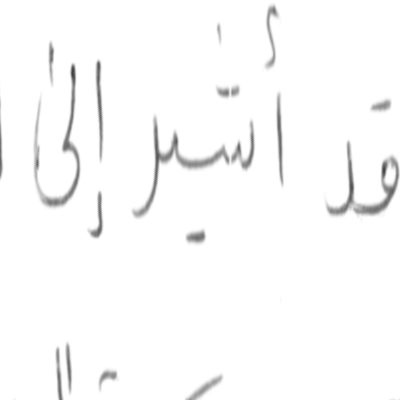 قد أشير إلى